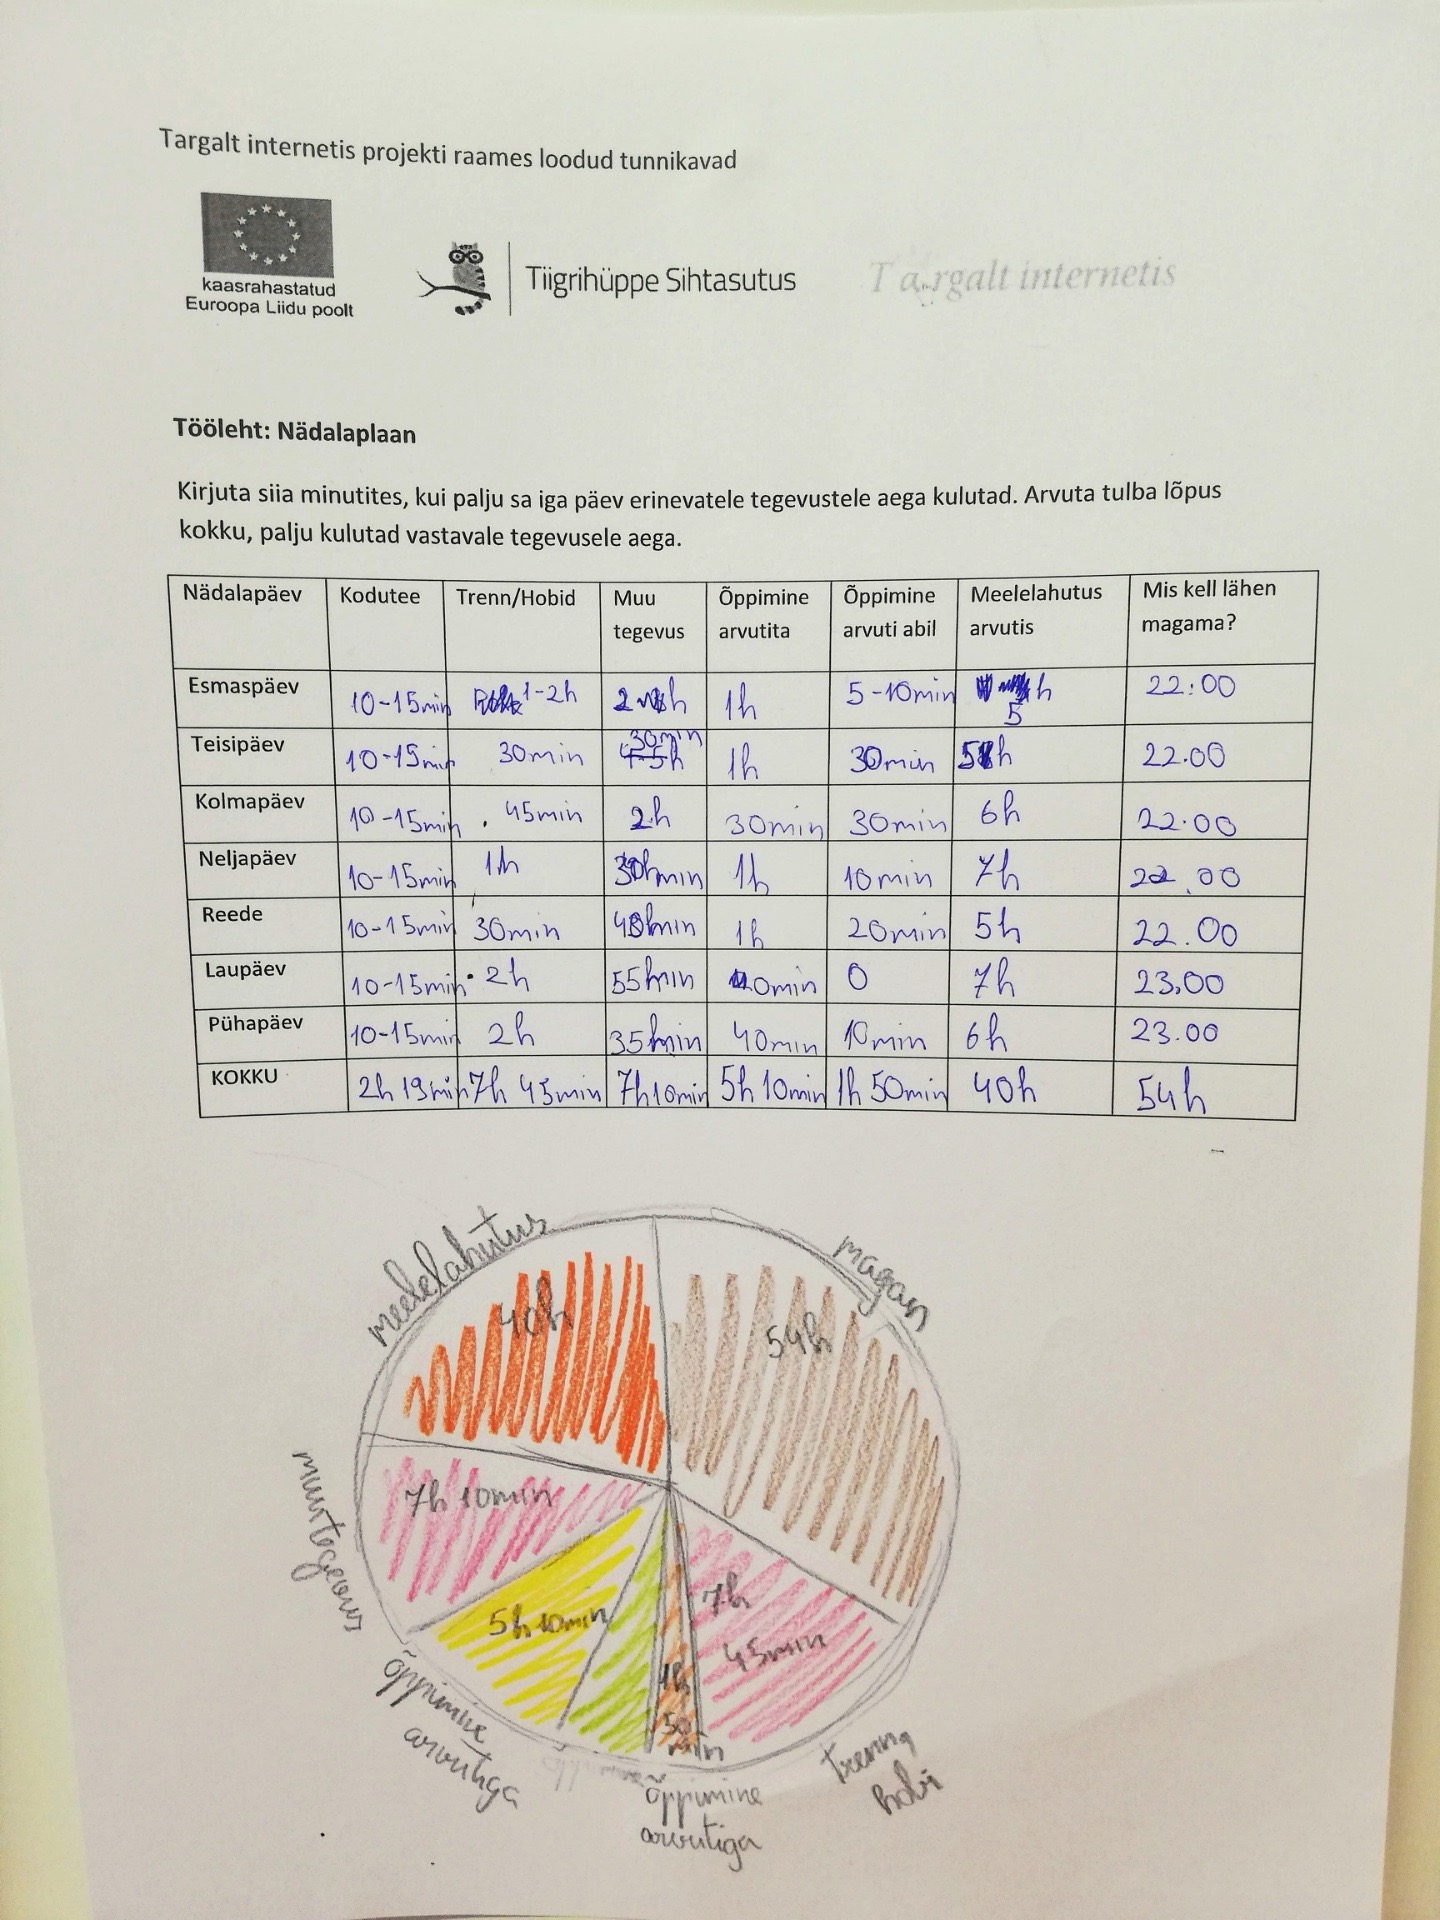 Targalt internetis projekti raames loodud tunnikavad
kaasrahastatud
Euroopa Liidu poolt
Tiigrihüppe Sihtasutus
Targalt internetis
Tööleht: Nädalaplaan
Kirjuta siia minutites, kui palju sa iga päev erinevatele tegevustele aega kulutad. Arvuta tulba lõpus
kokku, palju kulutad vastavale tegevusele aega.
Nädalapäev Kodutee Trenn/Hobid Muu tegevus Õppimine arvutita Õppimine arvuti abil Meelelahutus arvutis Mis kell lähen magama?
Esmaspäev 10-15min 1-2h 2h 1h 5-10min 5h 22:00
Teisipäev 10-15min 30min 30min 1h 30min 5h 22.00
Kolmapäev 10-15min 45min 2h 30min 30min 6h 22.00
Neljapäev 10-15min 1h 30min 1h 10min 7h 22.00
Reede 10-15min 30min min 1h 20min 5h 22.00
Laupäev 10-15min 2h 55min 40min 0 7h 23,00
Pühapäev 10-15min 2h 35min 40min 10min 6h 23.00
KOKKU 2h 19min 7h 45min 7h10min 5h 10min 1h 50min 40h 54h
meelelahutus
magan
40h
54h
7h 10min
muu tegevus
5h 10min
7h
45min
1h
50
min
õppimine
arvutiga
õppimine
arvutiga
trenn,
hobi